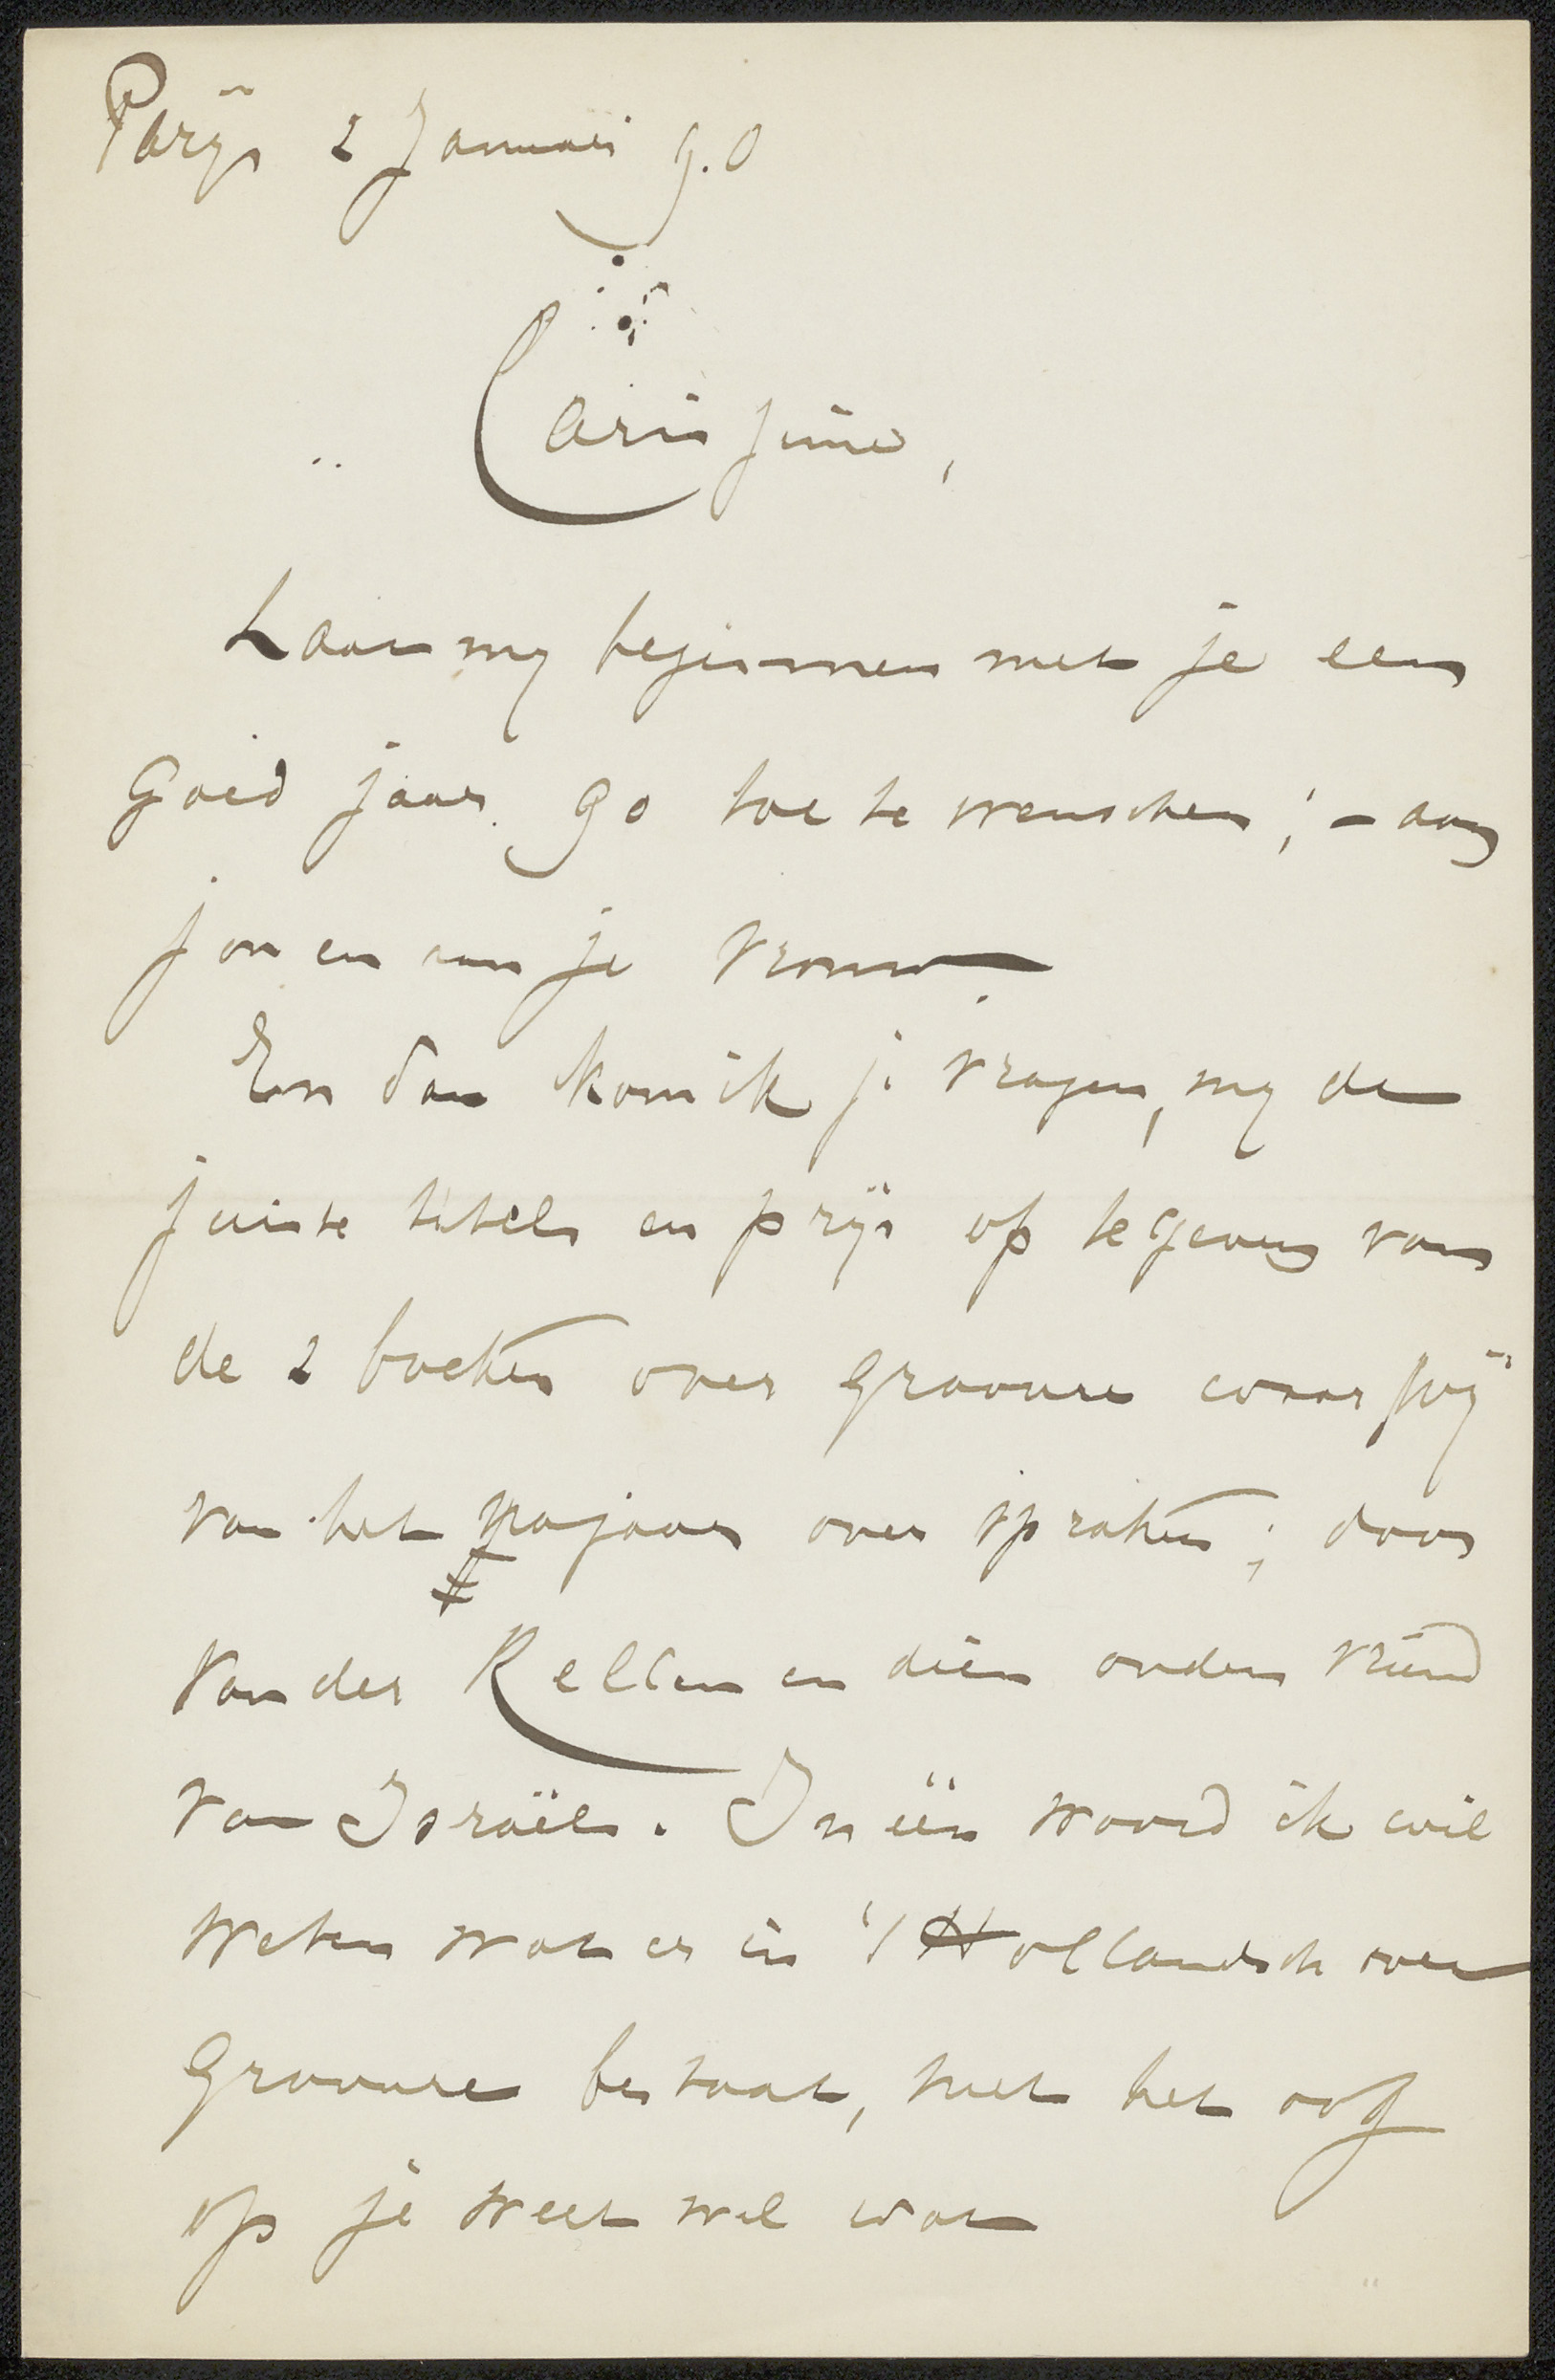 Parÿs 2 Januari 90
Carissime,
Laat my beginnen met je een
goed jaar 90 toe te wenschen; – aan
jou en aan je vrouw.
En dan kom ik je vragen, my de
juiste titels en prÿs op te geven van
de 2 boeken over gravure waar wÿ
van het najaar over spraken; door
Van der Kellen en dien ouden vriend
van Israëls. In één woord ik wil
weten wat er in 't Hollandsch over
Gravure bestaat, met het oog
op je weet wel wat